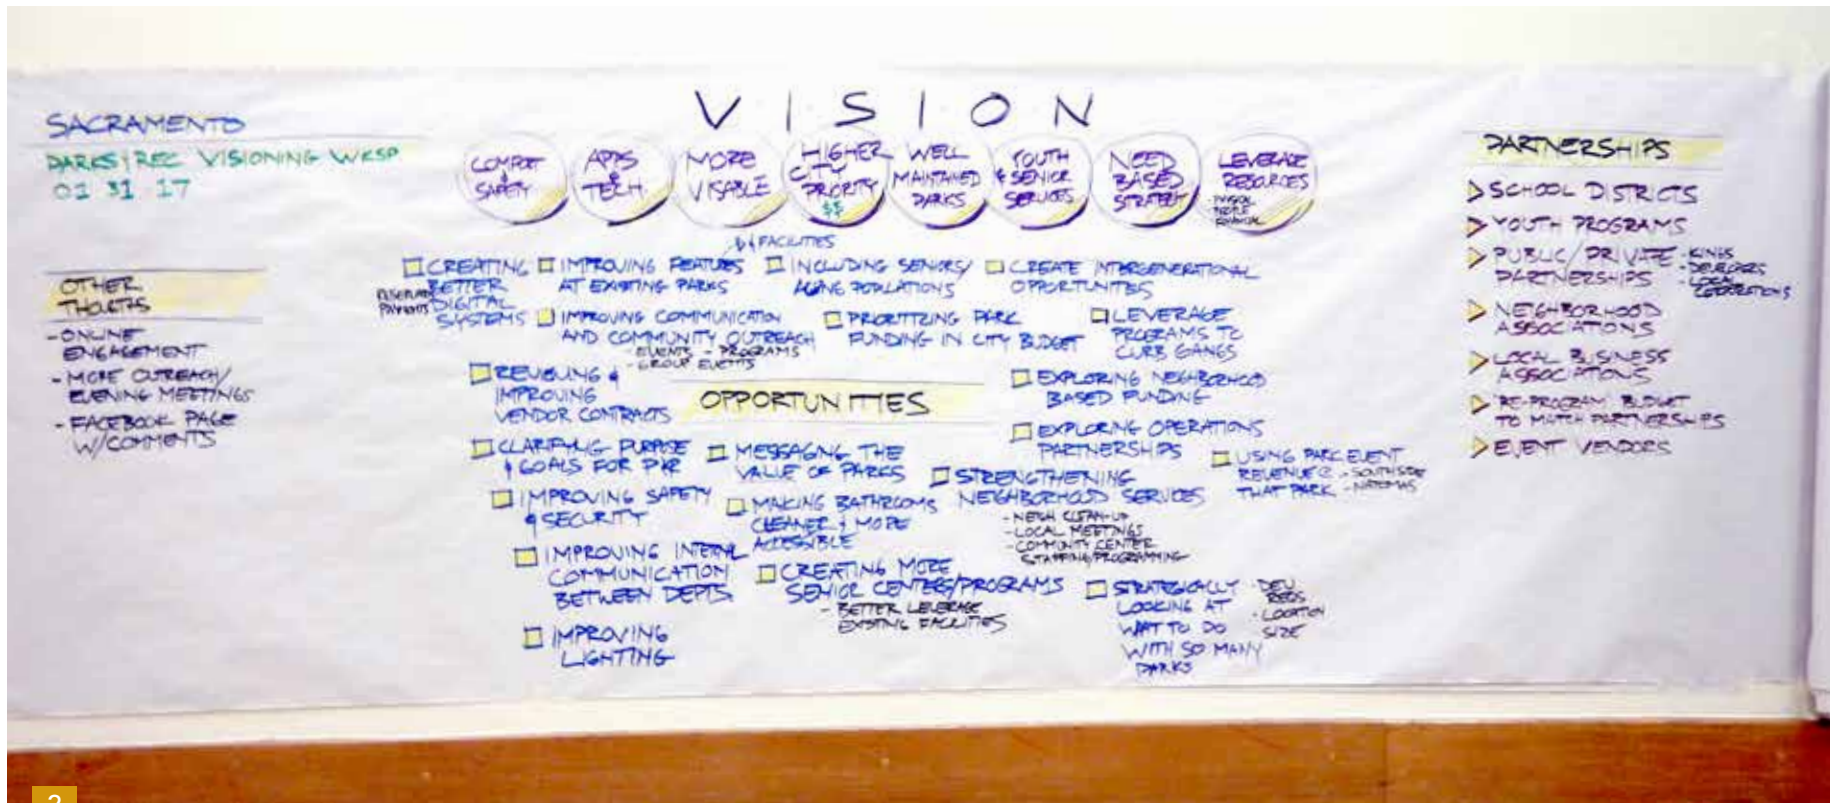 SACRAMENTO
PARKS & REC VISIONING WKSP
01 31 17
OTHER
THOUGHTS
- ONLINE
ENGAGEMENT
- MORE OUTREACH/
EVENING MEETINGS
- FACEBOOK PAGE
W/COMMENTS
VISION
COMFORT
&
SAFETY
APPS
&
TECH.
MORE
VISABLE
HIGHER
CITY
PRIORITY
$$
WELL
MAINTAINED
PARKS
YOUTH
& SENIOR
SERVICES
NEED
BASED
STRATEGY
LEVERAGE
RESOURCES
- PHYSICAL
- PEOPLE
- FINANCIAL
CREATING
BETTER
DIGITAL
SYSTEMS
PAYMENTS
& FACILITIES
IMPROVING FEATURES
AT EXISTING PARKS
INCLUDING SENIORS/
AGING POPULATIONS
CREATE INTERGENERATIONAL
OPPORTUNITIES
IMPROVING COMMUNICATION
AND COMMUNITY OUTREACH
- EVENTS - PROGRAMS
- GROUP EVENTS
PRIORITIZING PARK
FUNDING IN CITY BUDGET
LEVERAGE
PROGRAMS TO
CURB GANGS
REVIEWING &
IMPROVING
VENDOR CONTRACTS
OPPORTUNITIES
EXPLORING NEIGHBORHOOD
BASED FUNDING
EXPLORING OPERATIONS
PARTNERSHIPS
CLARIFYING PURPOSE
& GOALS FOR P&R
MESSAGING THE
VALUE OF PARKS
STRENGTHENING
NEIGHBORHOOD SERVICES
- NEIGH CLEAN-UP
- LOCAL MEETINGS
- COMMUNITY CENTER
STAFFING/PROGRAMMING
USING PARK EVENT
REVENUE @
THAT PARK
- SOUTHSIDE
- NATOMAS
IMPROVING SAFETY
& SECURITY
MAKING BATHROOMS
CLEANER & MORE
ACCESSIBLE
IMPROVING INTERNAL
COMMUNICATION
BETWEEN DEPTS.
CREATING MORE
SENIOR CENTERS/PROGRAMS
- BETTER LEVERAGE
EXISTING FACILITIES
STRATEGICALLY
LOOKING AT
WHAT TO DO
WITH SO MANY
PARKS
- LOCATION
SIZE
IMPROVING
LIGHTING
PARTNERSHIPS
SCHOOL DISTRICTS
YOUTH PROGRAMS
PUBLIC/PRIVATE
PARTNERSHIPS
- KINGS
- DEVELOPERS
- LOCAL
CORPORATIONS
NEIGHBORHOOD
ASSOCIATIONS
LOCAL BUSINESS
ASSOCIATIONS
RE-PROGRAM BUDGET
TO MATCH PARTNERSHIPS
EVENT VENDORS